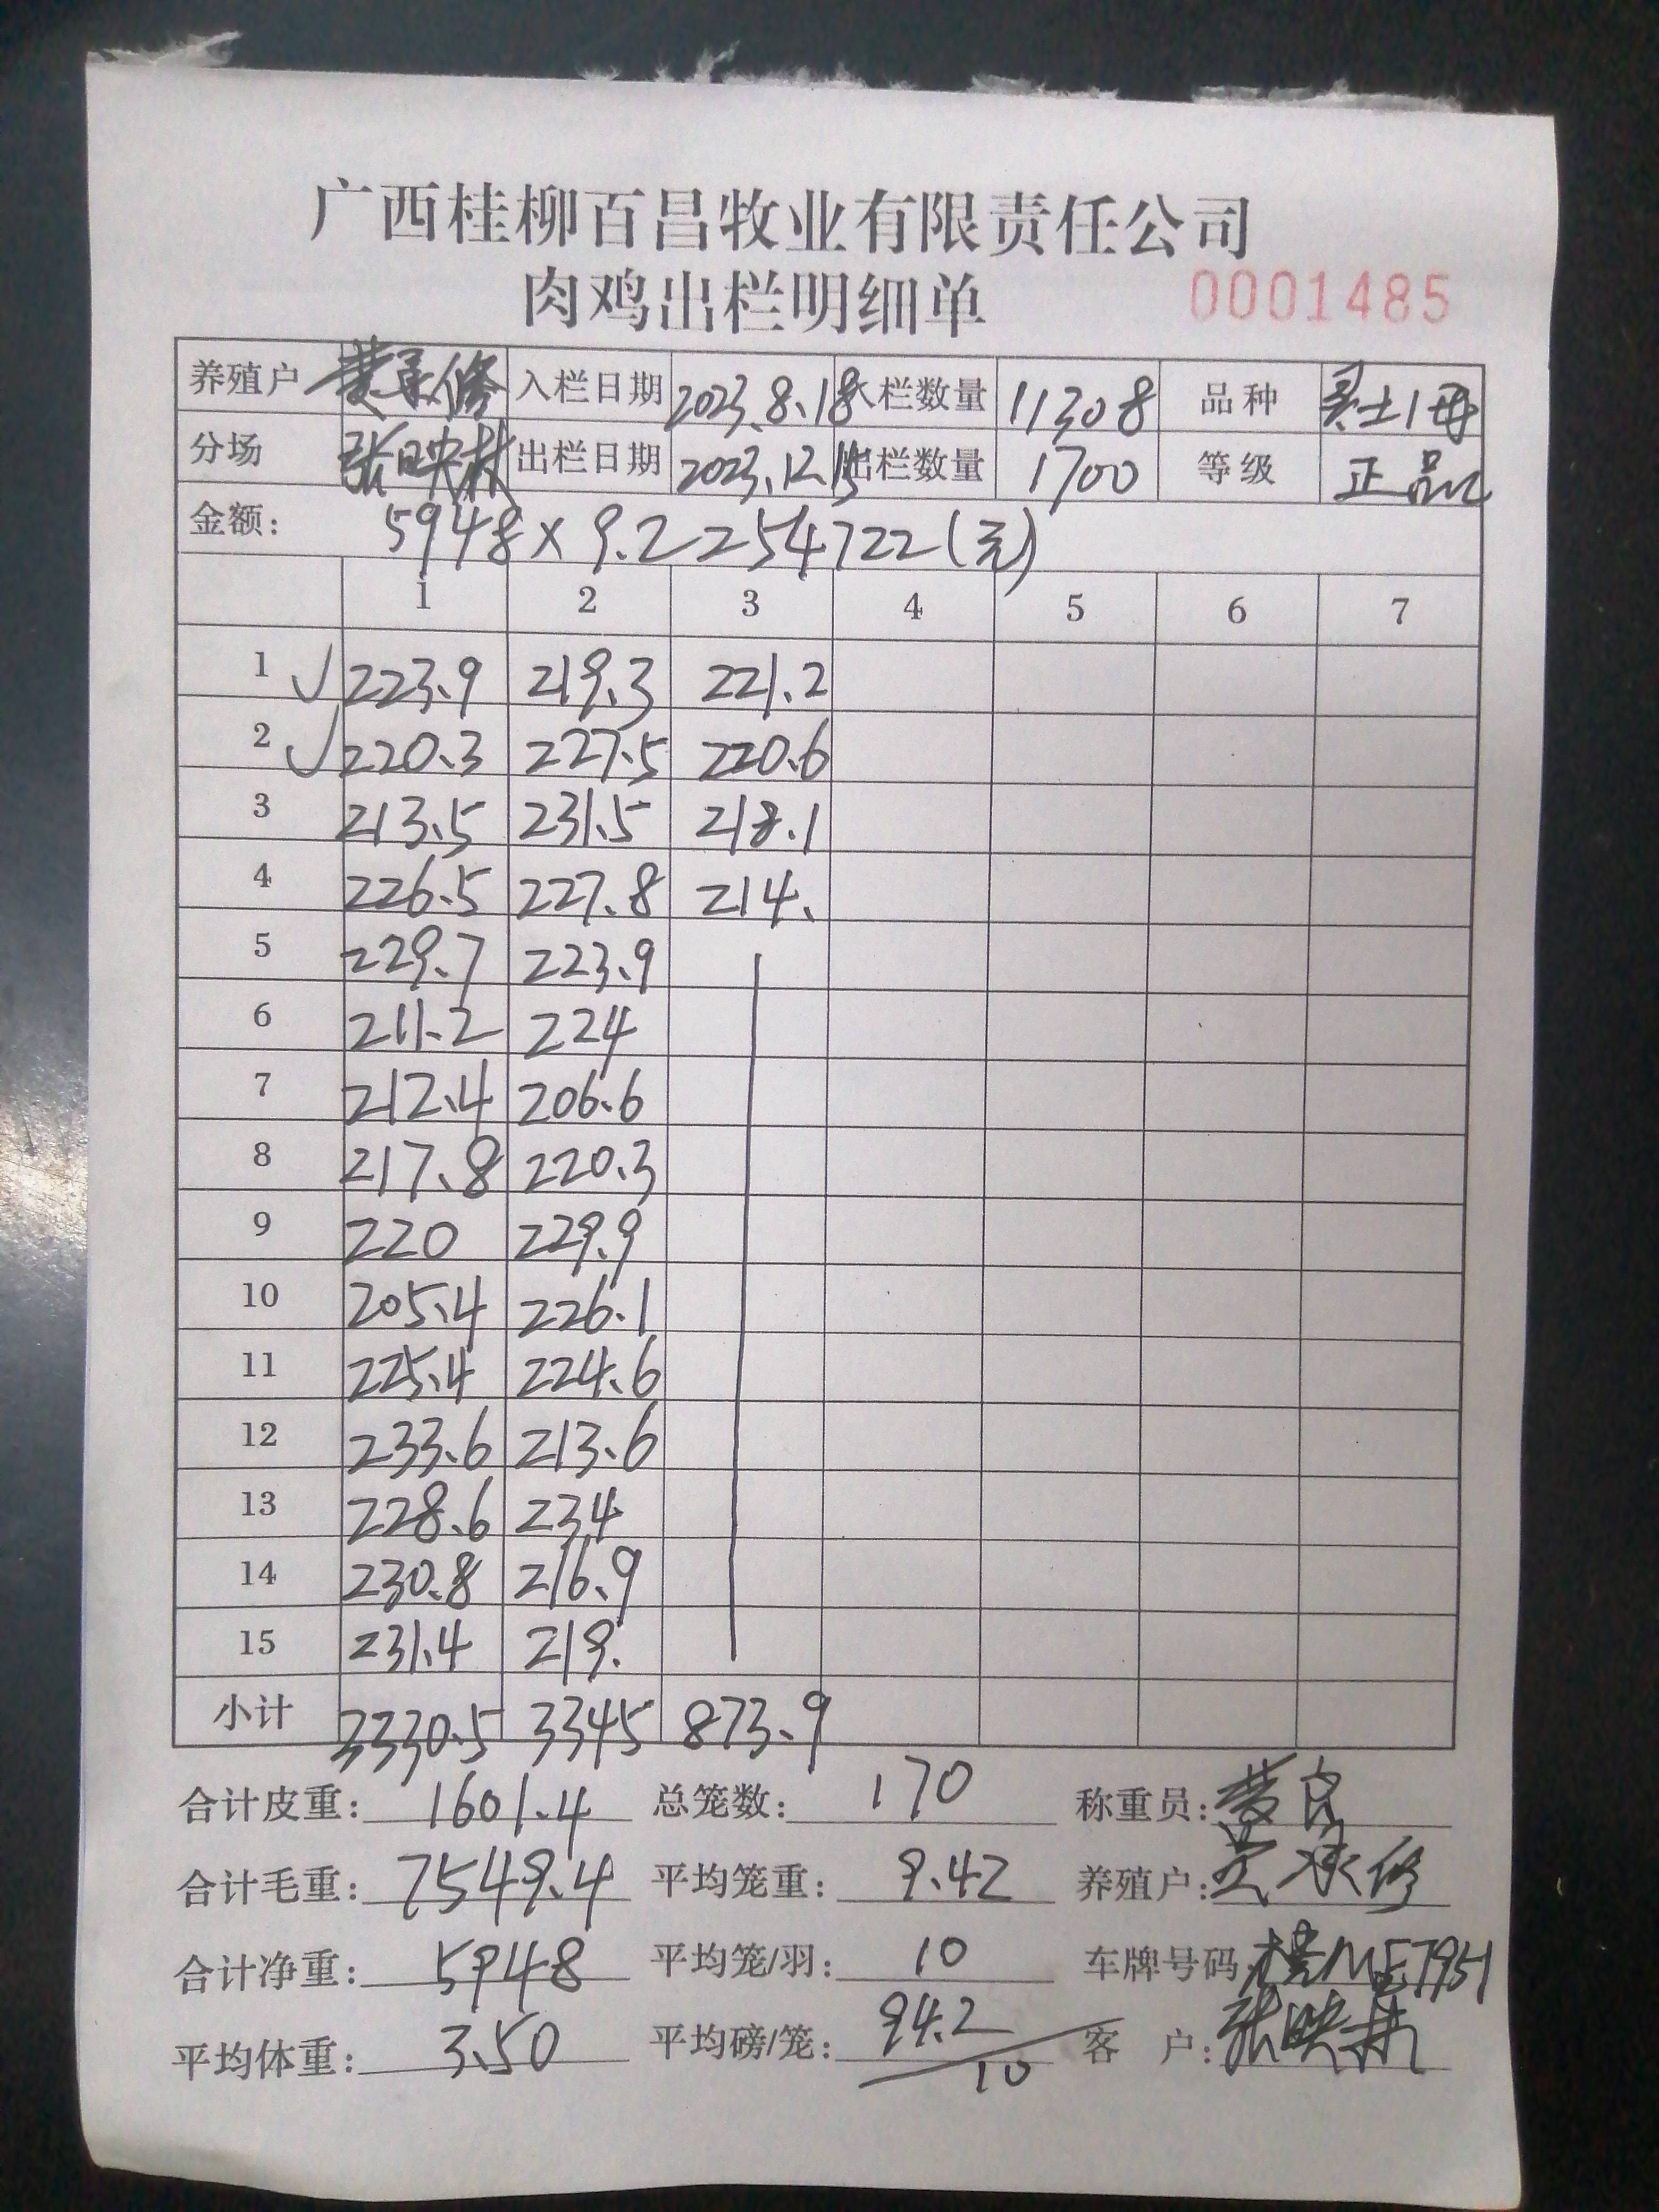 广西桂柳百昌牧业有限责任公司
肉鸡出栏明细单 0001485
养殖户 黄承修 入栏日期 2023.8.18 入栏数量 11308 品种
分场 张映林 出栏日期 2023.12.15 出栏数量 1700 等级 正品
金额: 5948×9.2=54722(元)
1 2 3 4 5 6 7
1 √ 223.9 219.3 221.2
2 √ 220.3 227.5 220.6
3 213.5 231.5 218.1
4 226.5 227.8 214.
5 229.7 223.9
6 211.2 224
7 212.4 206.6
8 217.8 220.3
9 220 229.9
10 205.4 226.1
11 225.4 224.6
12 233.6 213.6
13 228.6 234
14 230.8 216.9
15 231.4 219.
小计 3330.5 3345 873.9
合计皮重: 1601.4 总笼数: 170 称重员:
合计毛重: 7549.4 平均笼重: 9.42 养殖户: 黄承修
合计净重: 5948 平均笼/羽: 10 车牌号码
平均体重: 3.50 平均磅/笼: 94.2/10 客 户: 张映林